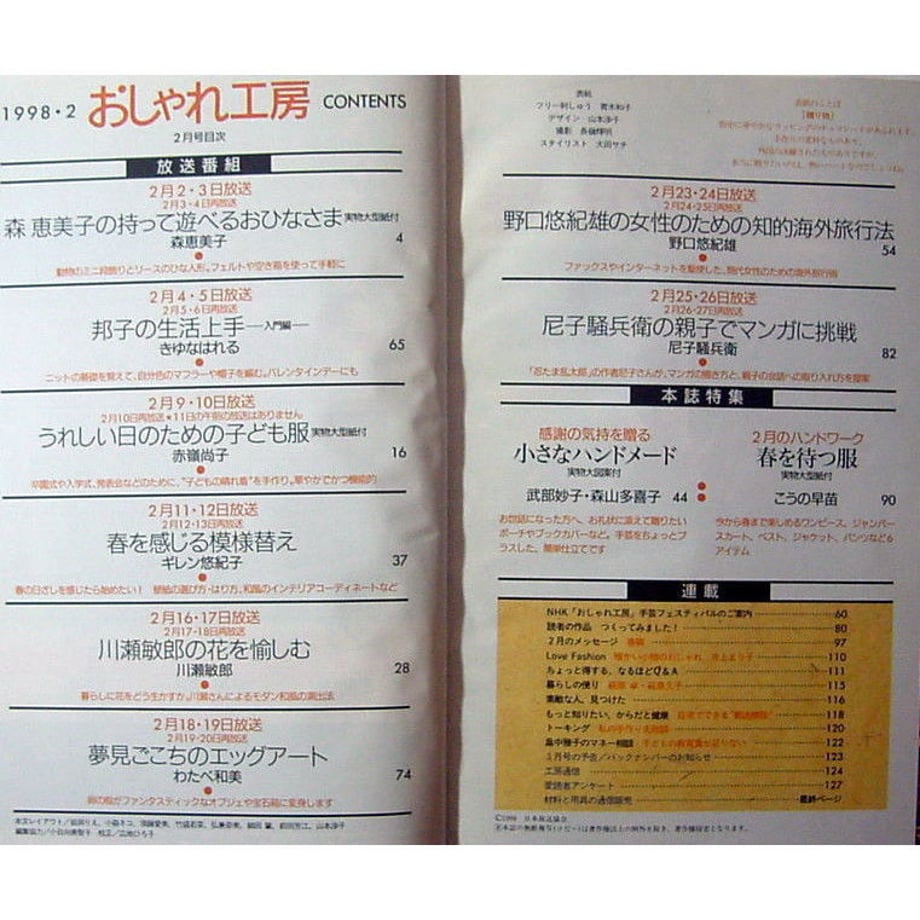 1998・2 おしゃれ工房 CONTENTS
2月号目次
放送番組
2月2・3日放送
2月3・4日再放送
森 恵美子の持って遊べるおひなさま 実物大型紙付
森恵美子 4
動物のミニ段飾りとリースのひな人形。フェルトや空き箱を使って手軽に
2月4・5日放送
2月5・6日再放送
邦子の生活上手―入門編―
きゆなはれる 65
ニットの基礎を覚えて、自分色のマフラーや帽子を編む。バレンタインデーにも
2月9・10日放送
2月10日再放送★11日の午前の放送はありません
うれしい日のための子ども服 実物大型紙付
赤嶺尚子 16
卒園式や入学式、発表会などのために、“子どもの晴れ着”を手作り。華やかでかつ機能的
2月11・12日放送
2月12・13日再放送
春を感じる模様替え
ギレン悠紀子 37
春の日ざしを感じたら始めたい! 壁紙の選び方・はり方、和風のインテリアコーディネートなど
2月16・17日放送
2月17・18日再放送
川瀬敏郎の花を愉しむ
川瀬敏郎 28
暮らしに花をどう生かすか。川瀬さんによるモダン和風の演出法
2月18・19日放送
2月19・20日再放送
夢見ごこちのエッグアート
わたべ和美 74
卵の殻がファンタスティックなオブジェや宝石箱に変身します
本文レイアウト/
編集協力/
表紙
フリー刺しゅう 青木和子
デザイン 山本洋子
撮影 長嶺輝明
スタイリスト 大田サチ
表紙のことば
[贈り物]
2月23・24日放送
2月24・25日再放送
野口悠紀雄の女性のための知的海外旅行法
野口悠紀雄 54
ファックスやインターネットを駆使した、現代女性のための海外旅行術
2月25・26日放送
2月26・27日再放送
尼子騒兵衛の親子でマンガに挑戦
尼子騒兵衛 82
「忍たま乱太郎」の作者尼子さんが、マンガの描き方と、親子の会話への取り入れ方を提案
本誌特集
感謝の気持を贈る
小さなハンドメード
実物大図案付
武部妙子・森山多喜子 44
お世話になった方へ、お礼状に添えて贈りたい
ポーチやブックカバーなど。手芸をちょっとプ
ラスした、簡単仕立てです
2月のハンドワーク
春を待つ服
実物大型紙付
こうの早苗 90
今から春まで楽しめるワンピース、ジャンパー
スカート、ベスト、ジャケット、パンツなど6
アイテム
連載
NHK「おしゃれ工房」手芸フェスティバルのご案内 60
読者の作品 つくってみました! 80
2月のメッセージ 97
Love Fashion 110
ちょっと得する、なるほどQ&A 111
暮らしの便り 115
素敵な人、見つけた 116
もっと知りたい、からだと健康 118
トーキング 私の手作り 120
畠中雅子のマネー相談 子どもの教育費が足りない 122
3月号の予告/バックナンバーのお知らせ 123
工房通信 124
愛読者アンケート 127
材料と用具の通信販売 最終ページ
©1998 日本放送協会